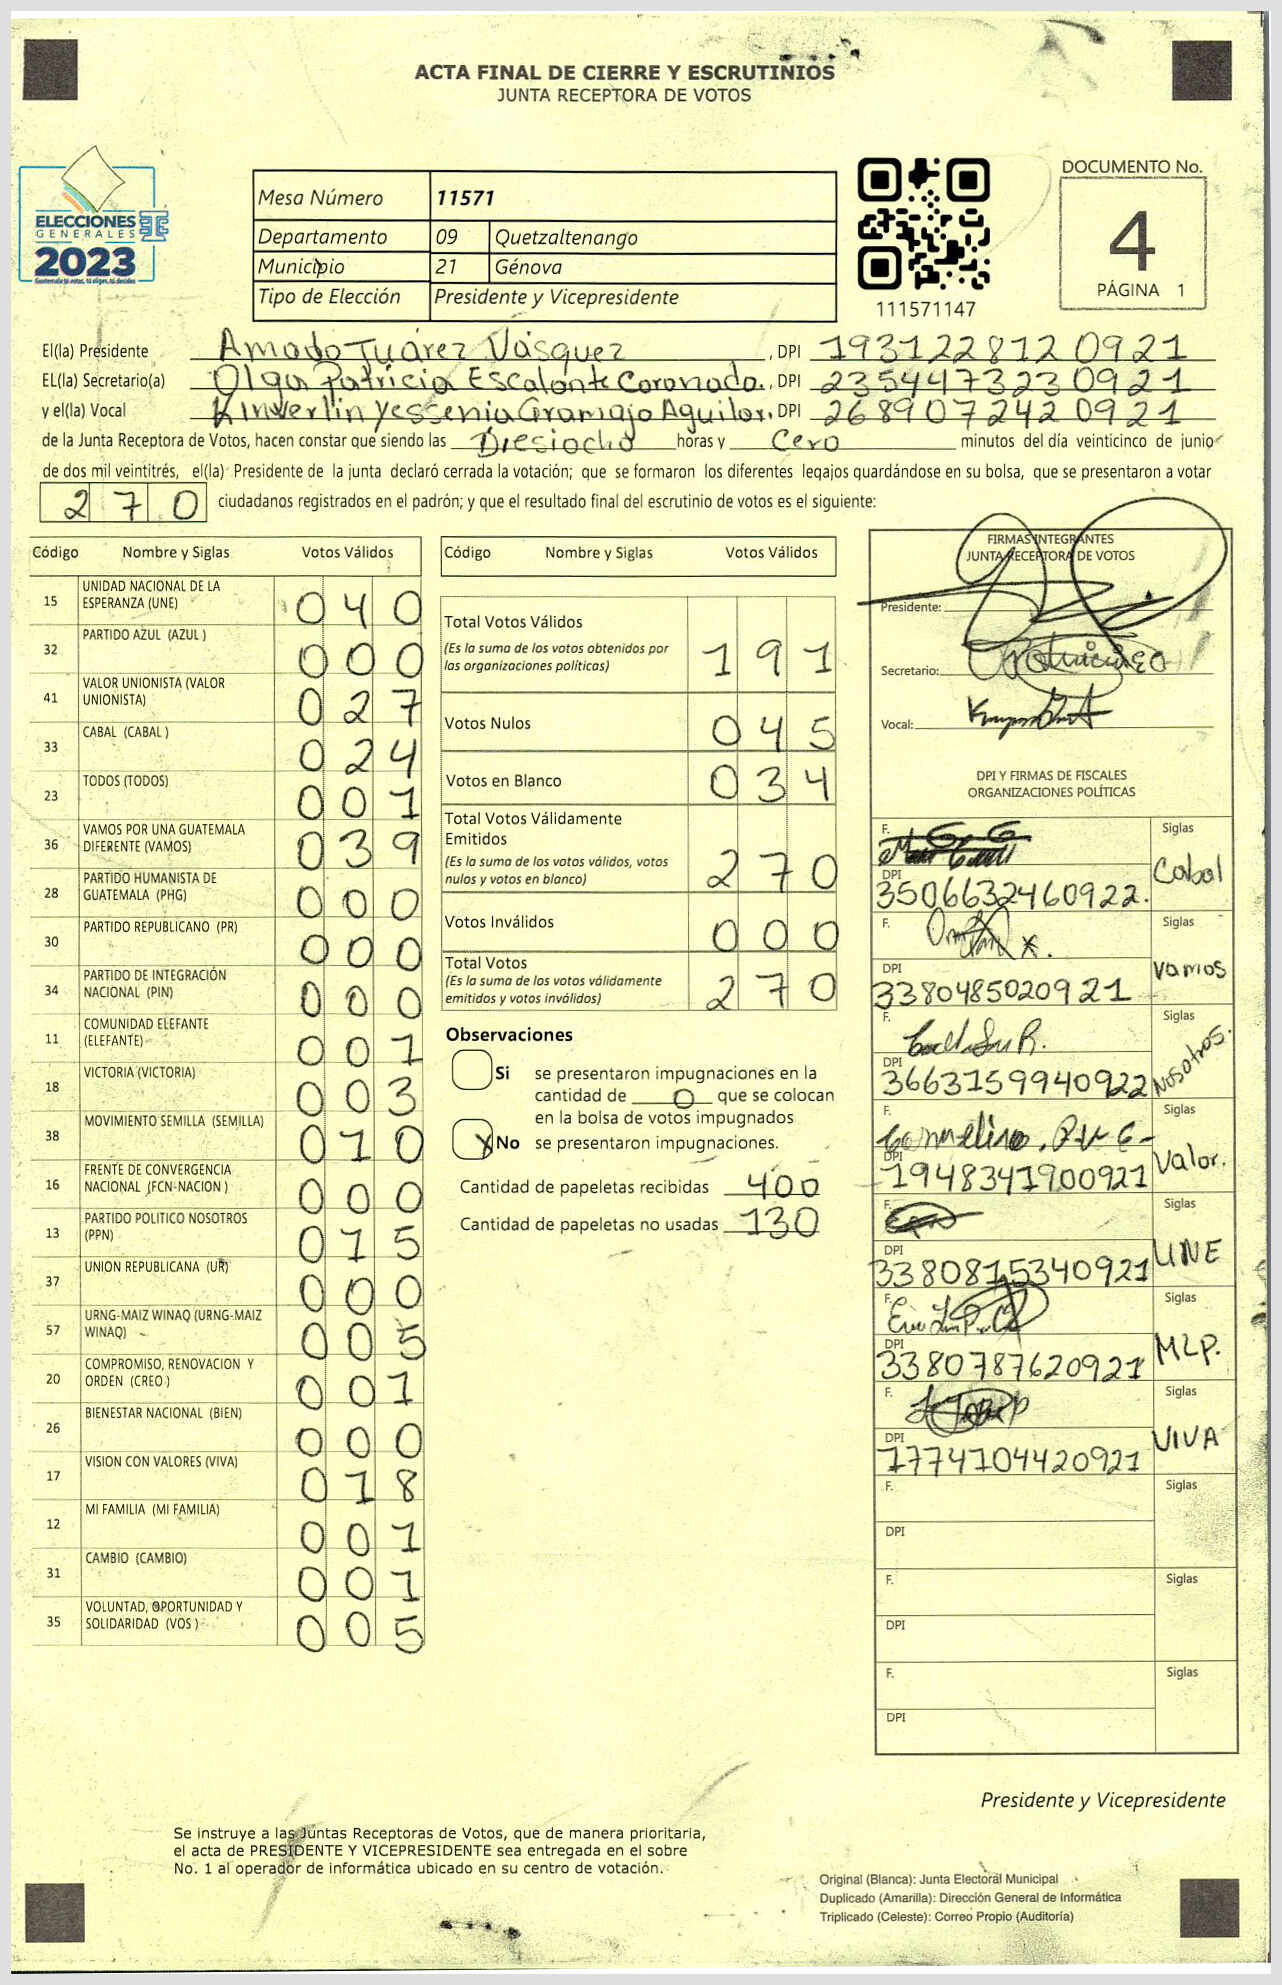 ACTA FINAL DE CIERRE Y ESCRUTINIOS
JUNTA RECEPTORA DE VOTOS
ELECCIONES
GENERALES
2023
Guatemala tú votas, tú eliges, tú decides
Mesa Número 11571
Departamento 09 Quetzaltenango
Municipio 21 Génova
Tipo de Elección Presidente y Vicepresidente
111571147
DOCUMENTO No.
4
PÁGINA 1
El(la) Presidente Amado Tuárez Vásquez, DPI 193122812 0921
EL(la) Secretario(a) Olga Patricia Escalante Coronado., DPI 235447323 0921
y el(la) Vocal Kimverlin Yessenia Gramajo Aguilar, DPI 268907242 0921
de la Junta Receptora de Votos, hacen constar que siendo las Diesiocho horas y Cero minutos del día veinticinco de junio
de dos mil veintitrés, el(la) Presidente de la junta declaró cerrada la votación; que se formaron los diferentes legajos guardándose en su bolsa, que se presentaron a votar
270 ciudadanos registrados en el padrón; y que el resultado final del escrutinio de votos es el siguiente:
Código Nombre y Siglas Votos Válidos
15 UNIDAD NACIONAL DE LA ESPERANZA (UNE) 040
32 PARTIDO AZUL (AZUL ) 000
41 VALOR UNIONISTA (VALOR UNIONISTA) 027
33 CABAL (CABAL ) 024
23 TODOS (TODOS) 001
36 VAMOS POR UNA GUATEMALA DIFERENTE (VAMOS) 039
28 PARTIDO HUMANISTA DE GUATEMALA (PHG) 000
30 PARTIDO REPUBLICANO (PR) 000
34 PARTIDO DE INTEGRACIÓN NACIONAL (PIN) 000
11 COMUNIDAD ELEFANTE (ELEFANTE) 001
18 VICTORIA (VICTORIA) 003
38 MOVIMIENTO SEMILLA (SEMILLA) 010
16 FRENTE DE CONVERGENCIA NACIONAL (FCN-NACION ) 000
13 PARTIDO POLITICO NOSOTROS (PPN) 015
37 UNION REPUBLICANA (UR) 000
57 URNG-MAIZ WINAQ (URNG-MAIZ WINAQ) 005
20 COMPROMISO, RENOVACION Y ORDEN (CREO ) 001
26 BIENESTAR NACIONAL (BIEN) 000
17 VISION CON VALORES (VIVA) 018
12 MI FAMILIA (MI FAMILIA) 001
31 CAMBIO (CAMBIO) 001
35 VOLUNTAD, OPORTUNIDAD Y SOLIDARIDAD (VOS ) 005
Código Nombre y Siglas Votos Válidos
Total Votos Válidos 191
(Es la suma de los votos obtenidos por
las organizaciones políticas)
Votos Nulos 045
Votos en Blanco 034
Total Votos Válidamente
Emitidos 270
(Es la suma de los votos válidos, votos
nulos y votos en blanco)
Votos Inválidos 000
Total Votos 270
(Es la suma de los votos válidamente
emitidos y votos inválidos)
Observaciones
Si se presentaron impugnaciones en la
cantidad de 0 que se colocan
en la bolsa de votos impugnados
X No se presentaron impugnaciones.
Cantidad de papeletas recibidas 400
Cantidad de papeletas no usadas 130
FIRMAS INTEGRANTES
JUNTA RECEPTORA DE VOTOS
Presidente:
Secretario:
Vocal:
DPI Y FIRMAS DE FISCALES
ORGANIZACIONES POLÍTICAS
F. Siglas
Cabal
DPI
3506632460922.
F. Siglas
Vamos
DPI
3380485020921
F. Siglas
Nosotros.
DPI
3663159940922
F. Siglas
Valor.
DPI
1948341900921
F. Siglas
UNE
DPI
3380815340921
F. Siglas
MLP.
DPI
3380787620921
F. Siglas
VIVA
DPI
1774104420921
F. Siglas
DPI
F. Siglas
DPI
F. Siglas
DPI
Presidente y Vicepresidente
Se instruye a las Juntas Receptoras de Votos, que de manera prioritaria,
el acta de PRESIDENTE Y VICEPRESIDENTE sea entregada en el sobre
No. 1 al operador de informática ubicado en su centro de votación.
Original (Blanca): Junta Electoral Municipal
Duplicado (Amarilla): Dirección General de Informática
Triplicado (Celeste): Correo Propio (Auditoría)